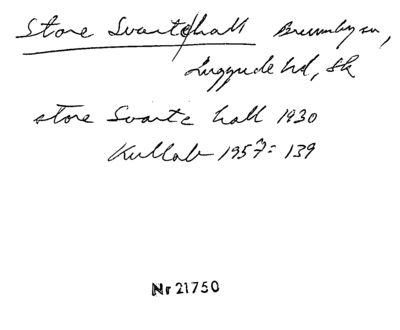 Store Svarte/hall Brunnby sn,
Luggude hd, Sk
store Svarte hall 1930
Kullab 1957: 139
Nr 21750